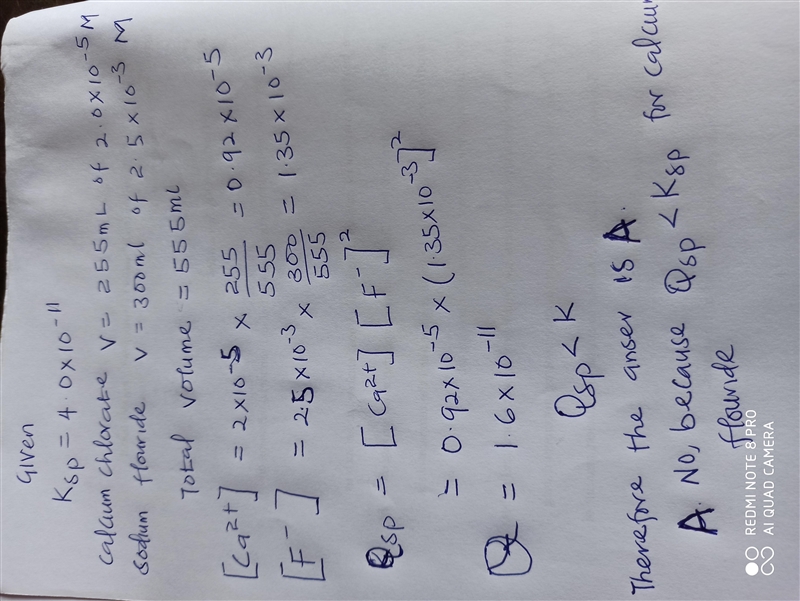 Given
Ksp = 4.0×10⁻¹¹
calcium chlorate V = 255mL of 2.0×10⁻⁵ M
sodium flouride V = 300ml of 2.5×10⁻³ M
Total volume = 555mL
[Ca²⁺] = 2×10⁻⁵ × 255/555 = 0.92×10⁻⁵
[F⁻] = 2.5×10⁻³ × 300/555 = 1.35×10⁻³
Qsp = [Ca²⁺] [F⁻]²
= 0.92×10⁻⁵ × (1.35×10⁻³]²
Q = 1.6×10⁻¹¹
Qsp < K
Therefore the anser is A.
A. No, because Qsp < Ksp for calcium
flouride
REDMI NOTE 8 PRO
AI QUAD CAMERA